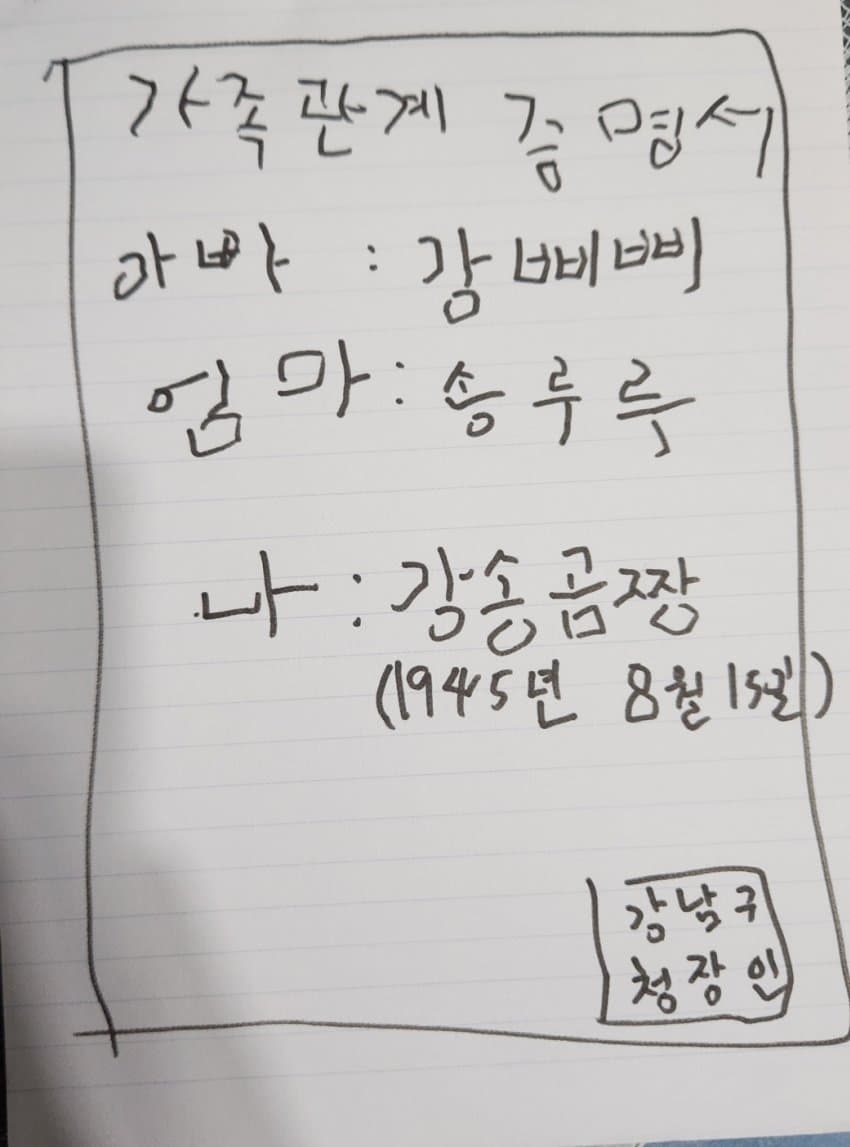 가족관계 증명서
아빠 : 강삐삐
엄마 : 송루루
나 : 강송곰짱
(1945년 8월 15일)
강남구
청장인